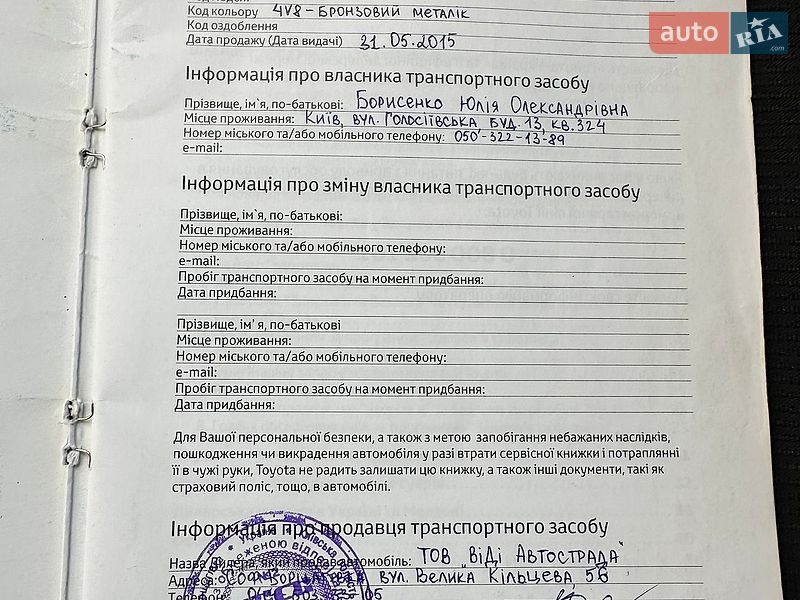 Код кольору 4V8 - Бронзовий металік
Код оздоблення
Дата продажу (Дата видачі) 31.05.2015
auto RIA .com
Інформація про власника транспортного засобу
Прізвище, ім`я, по-батькові: Борисенко Юлія Олександрівна
Місце проживання: Київ, вул. Голосіївська буд. 13, кв. 324
Номер міського та/або мобільного телефону: 050-322-13-89
e-mail:
Інформація про зміну власника транспортного засобу
Прізвище, ім`я, по-батькові:
Місце проживання:
Номер міського та/або мобільного телефону:
e-mail:
Пробіг транспортного засобу на момент придбання:
Дата придбання:
Прізвище, ім' я, по-батькові
Місце проживання:
Номер міського та/або мобільного телефону:
e-mail:
Пробіг транспортного засобу на момент придбання:
Дата придбання:
Для Вашої персональної безпеки, а також з метою запобігання небажаних наслідків,
пошкодження чи викрадення автомобіля у разі втрати сервісної книжки і потраплянні
її в чужі руки, Toyota не радить залишати цю книжку, а також інші документи, такі як
страховий поліс, тощо, в автомобілі.
Інформація про продавця транспортного засобу
Назва Дилера, який продав автомобіль: ТОВ "ВіДі Автострада"
Адреса: вул. Велика Кільцева, 56
Телефон